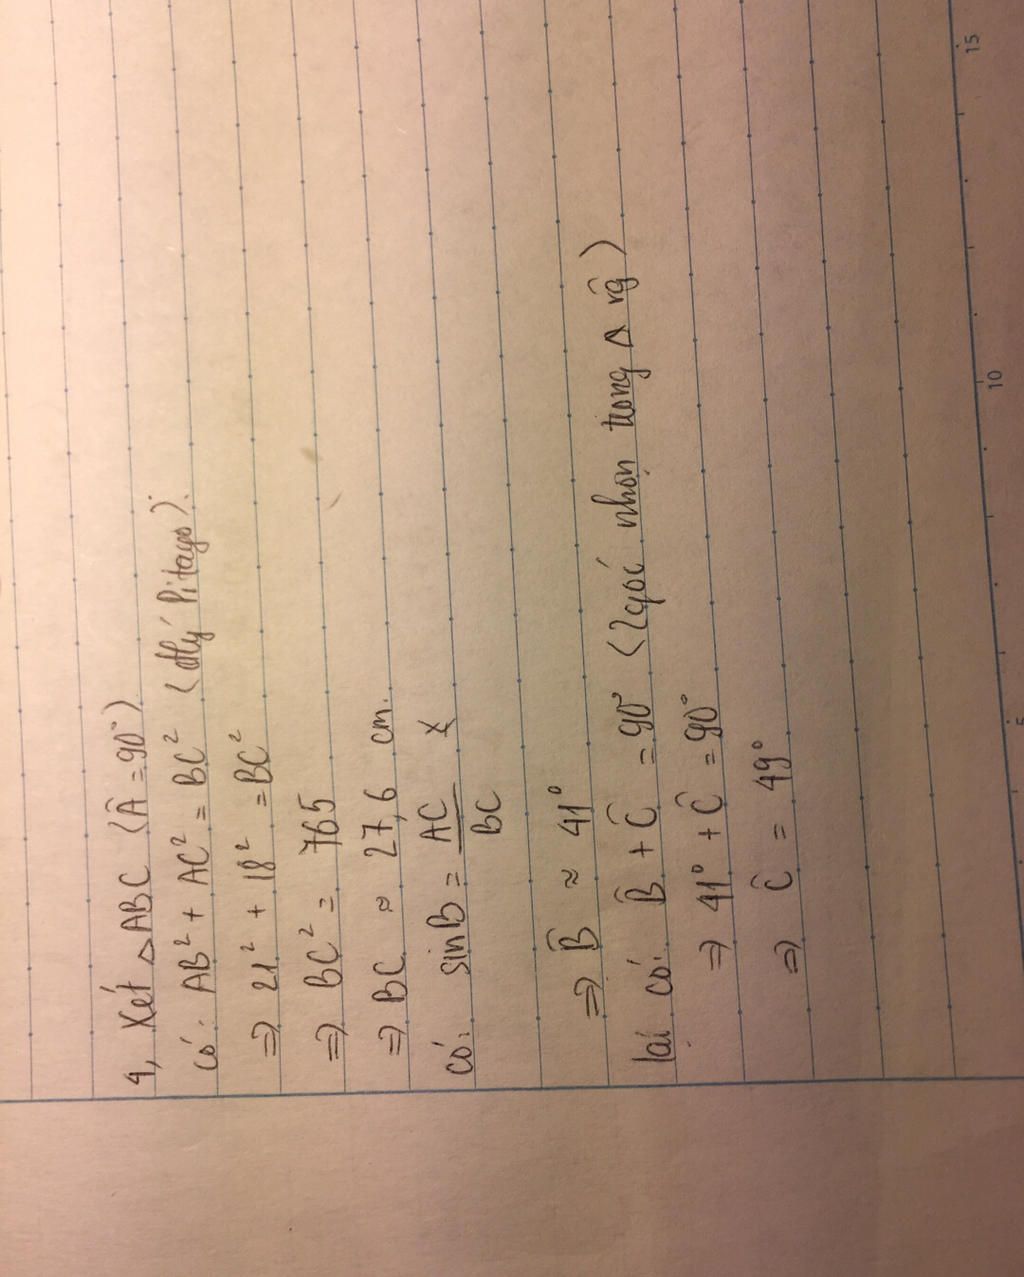 4, Xét △ABC (Â = 90°)
Có: AB² + AC² = BC² (đlý Pitago).
=> 21² + 18² = BC²
=> BC² = 765
=> BC ≈ 27,6 cm.
Có: sinB = AC/BC
=> B̂ ≈ 41°
lại có: B̂ + Ĉ = 90° (2 góc nhọn trong △ vg)
=> 41° + Ĉ = 90°
=> Ĉ = 49°
5 10 15